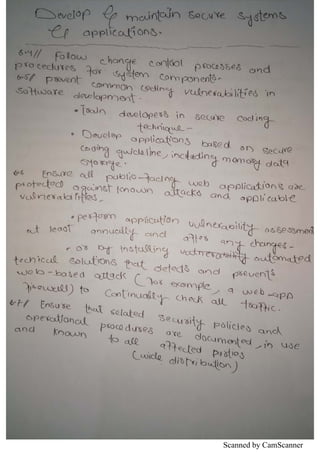 Develop & maintain secure systems
& applications.
6.4// Follow change control processes and
procedures for system components.
6.5// prevent common coding vulnerabilities in
software development.
• Train developers in secure coding
technique -
• Develop applications based on secure
coding guideline, including memory data
storage.
6.6 Ensure all public-facing web applications are
protected against known attacks and applicable
vulnerabilities.
• perform application vulnerability assessment
at least annually and after any changes.
• or by installing automated
technical solutions that detects and prevents
web-based attack (for example, a web-app
firewall) to continually check all traffic.
6.7// Ensure that related security policies and
operational procedures are documented, in use
and known to all affected parties
(wide distribution)
Scanned by CamScanner